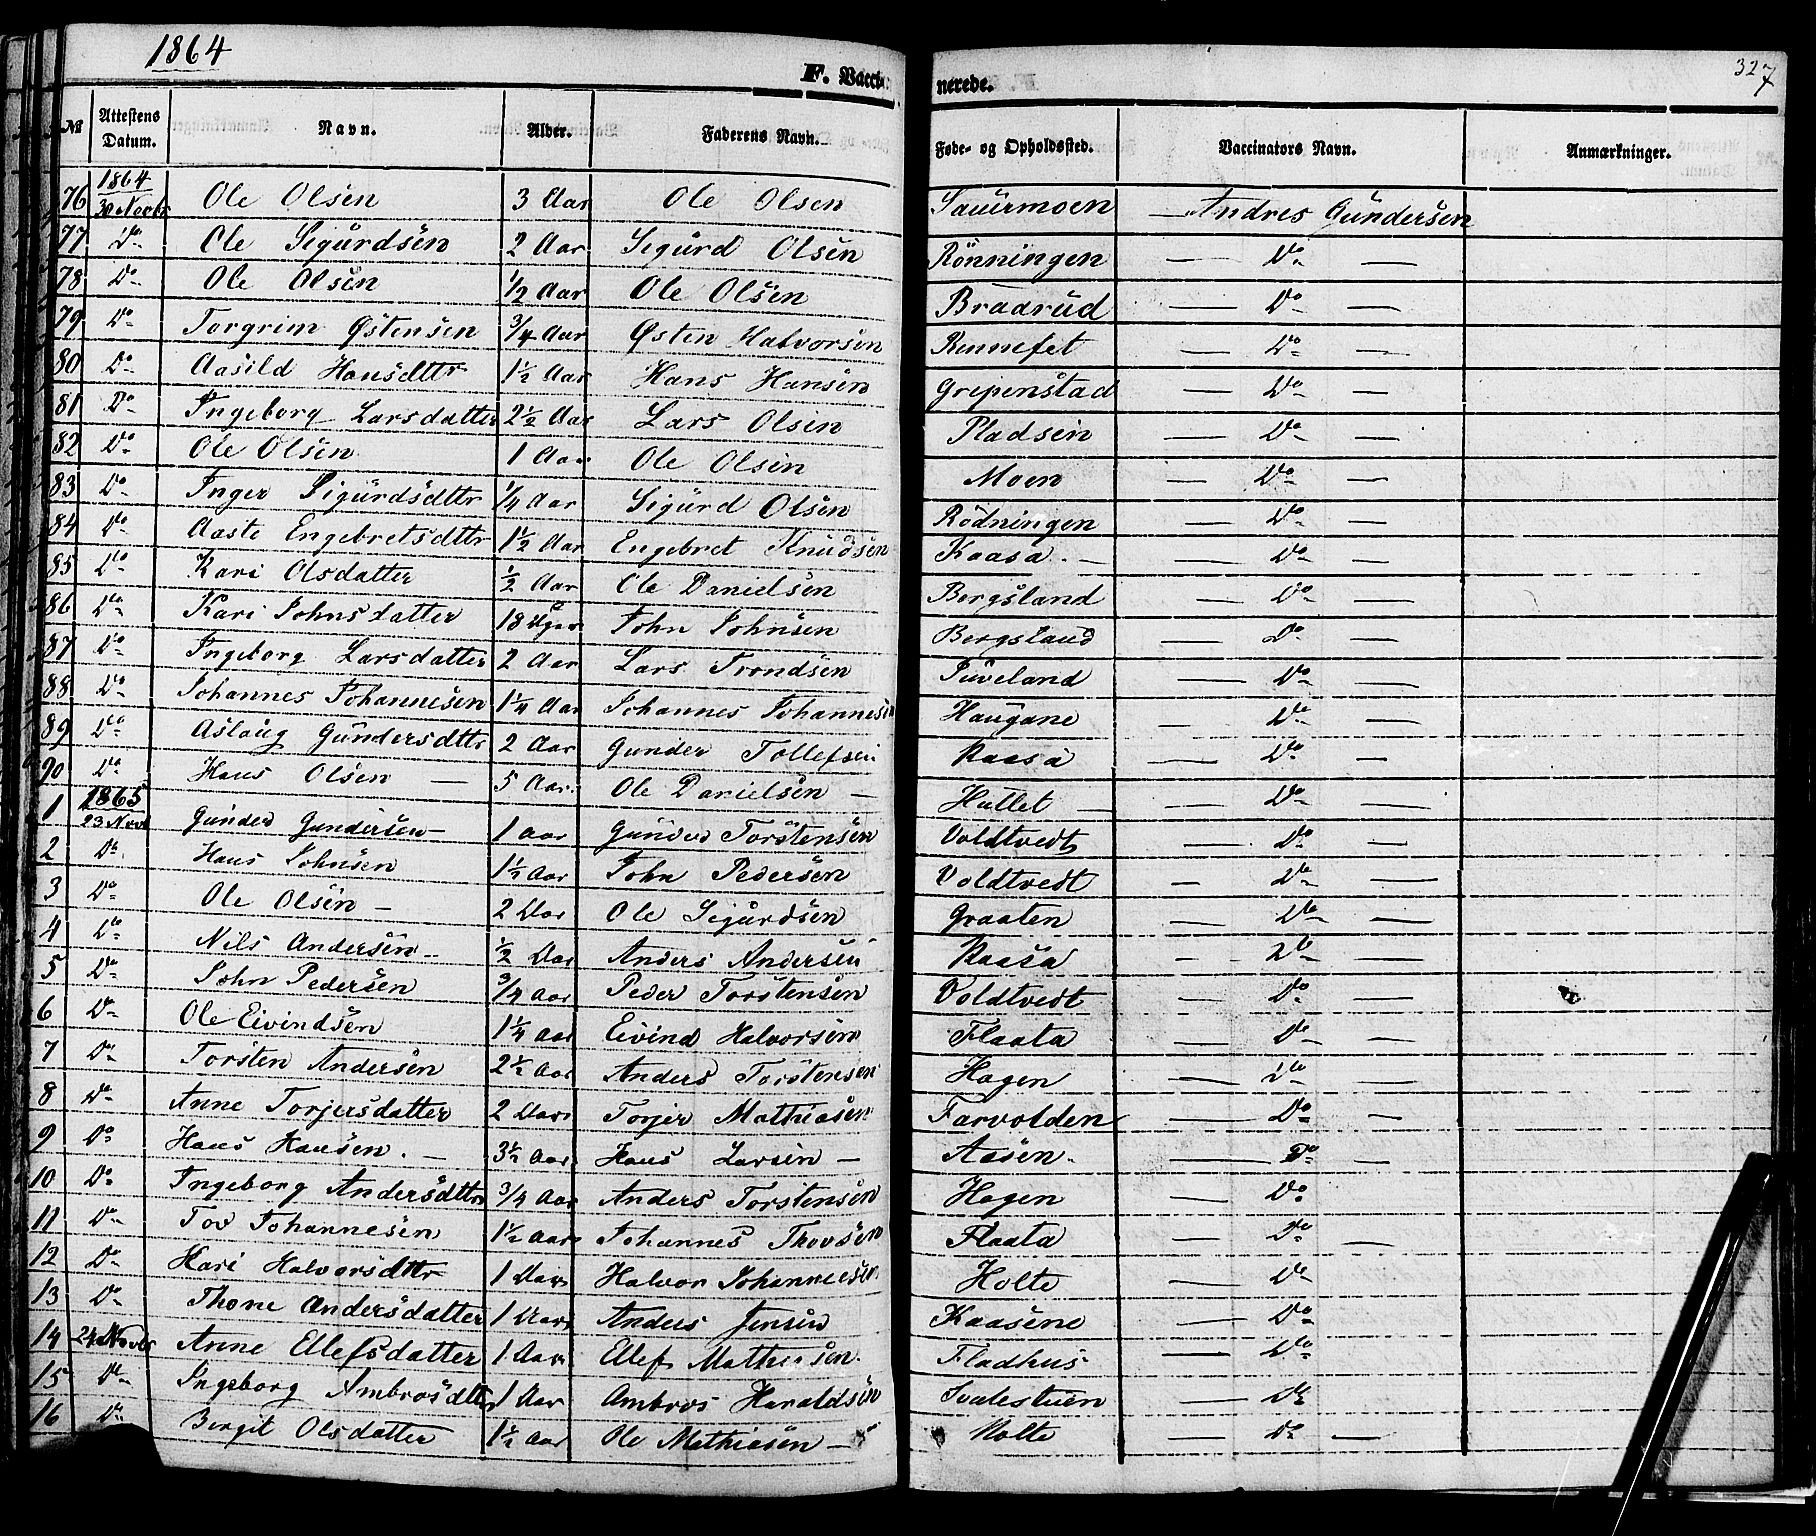 1864
F. Vacci
nerede.
327
№ Attestens Datum. Navn. Alder. Faderens Navn. Føde- og Opholdssted. Vaccinators Navn. Anmærkninger.
76 1864 30 Novbr Ole Olsen 3 Aar Ole Olsen Sauermoen — Andres Gundersen
77 Do Ole Sigurdsen 2 Aar Sigurd Olsen Rönningen — Do —
78 Do Ole Olsen ½ Aar Ole Olsen Braarud — Do —
79 Do Torgrim Østensen ¾ Aar Østen Halvorsen — Do —
80 Do Aasild Hansdttr 1½ Aar Hans Hansen Gripenstad — Do —
81 Do Ingeborg Larsdatter 2½ Aar Lars Olsen Pladsen — Do —
82 Do Ole Olsen 1 Aar Ole Olsen Moen — Do —
83 Do Inger Sigurdsdttr ¼ Aar Sigurd Olsen Rödningen — Do —
84 Do Aaste Engebretsdttr 1½ Aar Engebret Knudsen Kaasa — Do —
85 Do Kari Olsdatter ½ Aar Ole Danielsen Bergsland — Do —
86 Do Kari Johnsdatter 18 Uger John Johnsen Bergsland — Do —
87 Do Ingeborg Larsdatter 2 Aar Lars Trondsen Tuveland — Do —
88 Do Johannes Johannesen 1¼ Aar Johannes Johannesen Haugane — Do —
89 Do Aslaug Gundersdttr 2 Aar Gunder Tollefsen Kaasa — Do —
90 Do Hans Olsen — 5 Aar Ole Danielsen — Hullet — Do —
1 1865 23 Novb Gunder Gundersen — 1 aar Gunder Torstensen Voldtvedt — Do —
2 Do Hans Johnsen 1½ Aar John Pedersen Voldtvedt — Do —
3 Do Ole Olsen — 2 Aar Ole Sigurdsen Graaten — Do —
4 Do Nils Andersen ½ Aar Anders Andersen Kaasa — Do —
5 Do John Pedersen ¾ Aar Peder Torstensen Voldtvedt — Do —
6 Do Ole Eivindsen 1¼ Aar Eivind Halvorsen Flaata — Do —
7 Do Torsten Andersen 2½ Aar Anders Torstensen Hagen — Do —
8 Do Anne Torjersdatter 2 Aar Torjer Mathiasen Farvolden — Do —
9 Do Hans Hansen. — 3½ Aar Hans Larsen — Aasen. — Do —
10 Do Ingeborg Andersdttr ¾ Aar Anders Torstensen Hagen — Do
11 Do Tov Johannesen 1½ Aar Johannes Thovsen Flaata — Do —
12 Do Kari Halvorsdttr 1 Aar Halvor Johannesen Holte — Do —
13 Do Thone Andersdatter 1 Aar Anders Jensen Kaasene — Do —
14 24 Novbr Anne Ellefsdatter 1 Aar Ellef Mathiesen. Fladhus — Do —
15 Do Ingeborg Ambrosdttr 1 Aar Ambros Haraldsen Svalestuen — Do —
16 Do Bergit Olsdatter 1½ Aar Ole Mathiasen — Holte — Do —